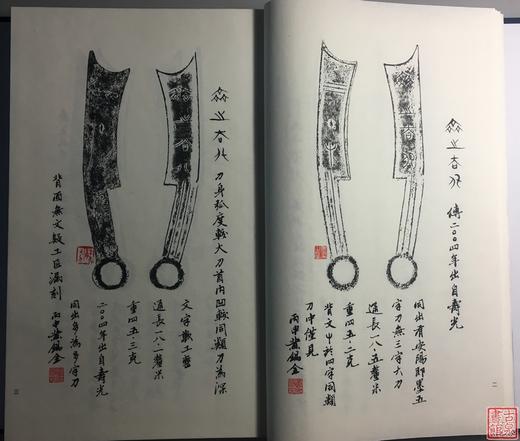 齊之夻化 傳二〇〇四年出自壽光
同出有安陽即墨五
字刀無三字大刀
通長一八·五釐米
重四五·二克
背文屮於四字同類
刀中僅見
丙申黄錫全
二
齊之夻化 刀身弧度較大刀首內凹較同類刀為深
文字較工整
通長一八·二釐米
重四五·三克
二〇〇四年出自壽光
同出多為多字刀
背面無文疑工匠漏刻
丙申黄錫全
三